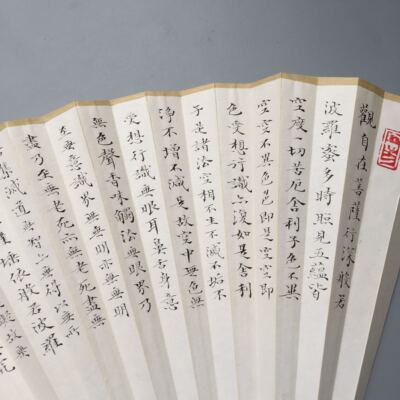 觀自在菩薩行深般若
波羅蜜多時照見五蘊皆
空度一切苦厄舍利子色不異
空空不異色色即是空空即
色受想行識亦復如是舍利
子是諸法空相不生不滅不垢不
淨不增不減是故空中無色無
受想行識無眼耳鼻舌身意
無色聲香味觸法無眼界乃
至無意識界無無明亦無無明
盡乃至無老死亦無老死盡無
集滅道無智亦無得以無所
埵依般若波羅